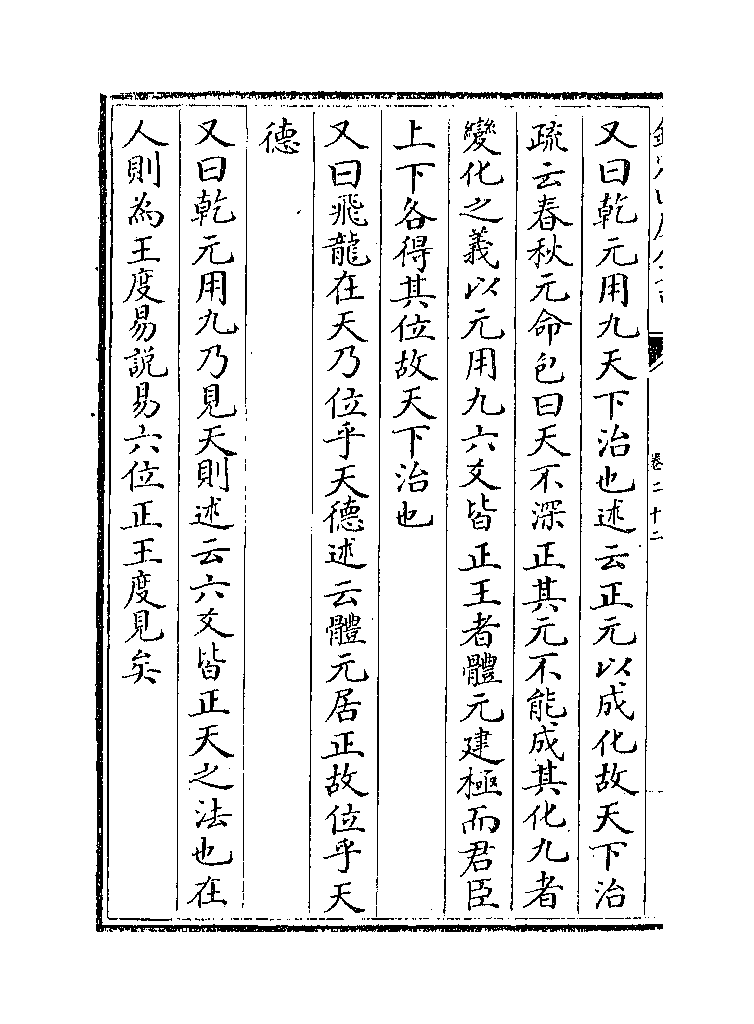 卷二十二
又曰乾元用九天下治也述云正元以成化故天下治
疏云春秋元命包曰天不深正其元不能成其化九者
變化之義以元用九六爻皆正王者體元建極而君臣
上下各得其位故天下治也
又曰飛龍在天乃位乎天德述云體元居正故位乎天
德
又曰乾元用九乃見天則述云六爻皆正天之法也在
人則為王度易說易六位正王度見矣